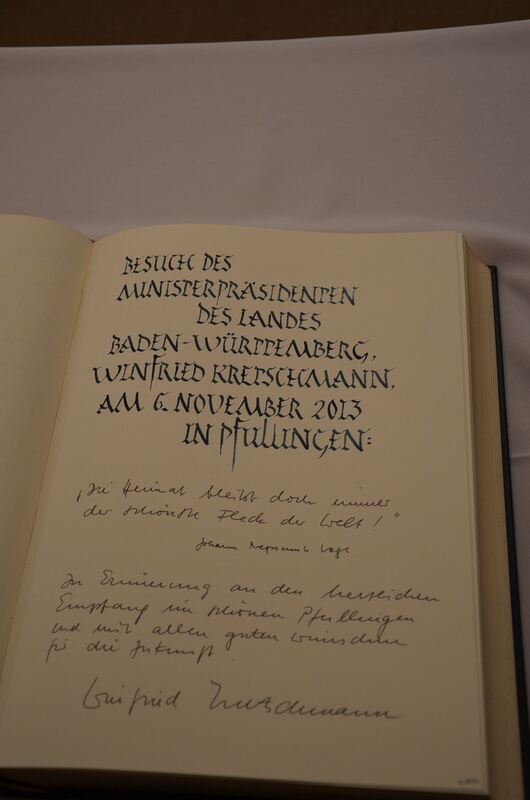 BESUCH DES
MINISTERPRÄSIDENTEN
DES LANDES
BADEN-WÜRTTEMBERG,
WINFRIED KRETSCHMANN,
AM 6. NOVEMBER 2013
IN PFULLINGEN:
„Die Heimat bleibt doch immer
der schönste Fleck der Welt!“
Johann Nepomuk Vogl
In Erinnerung an den herzlichen
Empfang im schönen Pfullingen
und mit allen guten Wünschen
für die Zukunft
Winfried Kretschmann